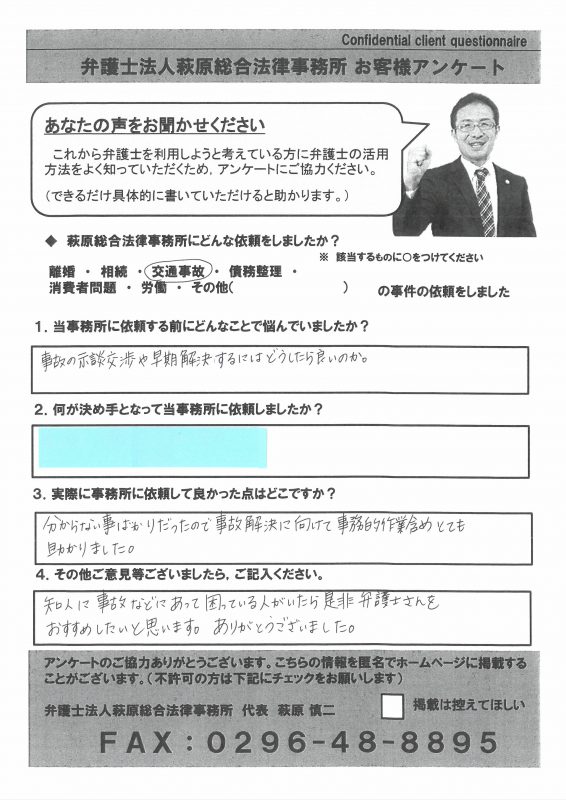 Confidential client questionnaire
弁護士法人萩原総合法律事務所 お客様アンケート
あなたの声をお聞かせください
これから弁護士を利用しようと考えている方に弁護士の活用
方法をよく知っていただくため，アンケートにご協力ください。
（できるだけ具体的に書いていただけると助かります。）
◆ 萩原総合法律事務所にどんな依頼をしましたか？
※ 該当するものに○をつけてください
離婚 ・ 相続 ・ 交通事故 ・ 債務整理 ・
消費者問題 ・ 労働 ・ その他( ) の事件の依頼をしました
１．当事務所に依頼する前にどんなことで悩んでいましたか？
事故の示談交渉や早期解決するにはどうしたら良いのか。
２．何が決め手となって当事務所に依頼しましたか？
３．実際に事務所に依頼して良かった点はどこですか？
分からない事ばかりだったので事故解決に向けて事務的作業含めとても
助かりました。
４．その他ご意見等ございましたら，ご記入ください。
知人に事故などにあって困っている人がいたら是非弁護士さんを
おすすめしたいと思います。ありがとうございました。
アンケートのご協力ありがとうございます。こちらの情報を匿名でホームページに掲載する
ことがございます。（不許可の方は下記にチェックをお願いします）
弁護士法人萩原総合法律事務所 代表 萩原 慎二
掲載は控えてほしい
ＦＡＸ：０２９６-４８-８８９５